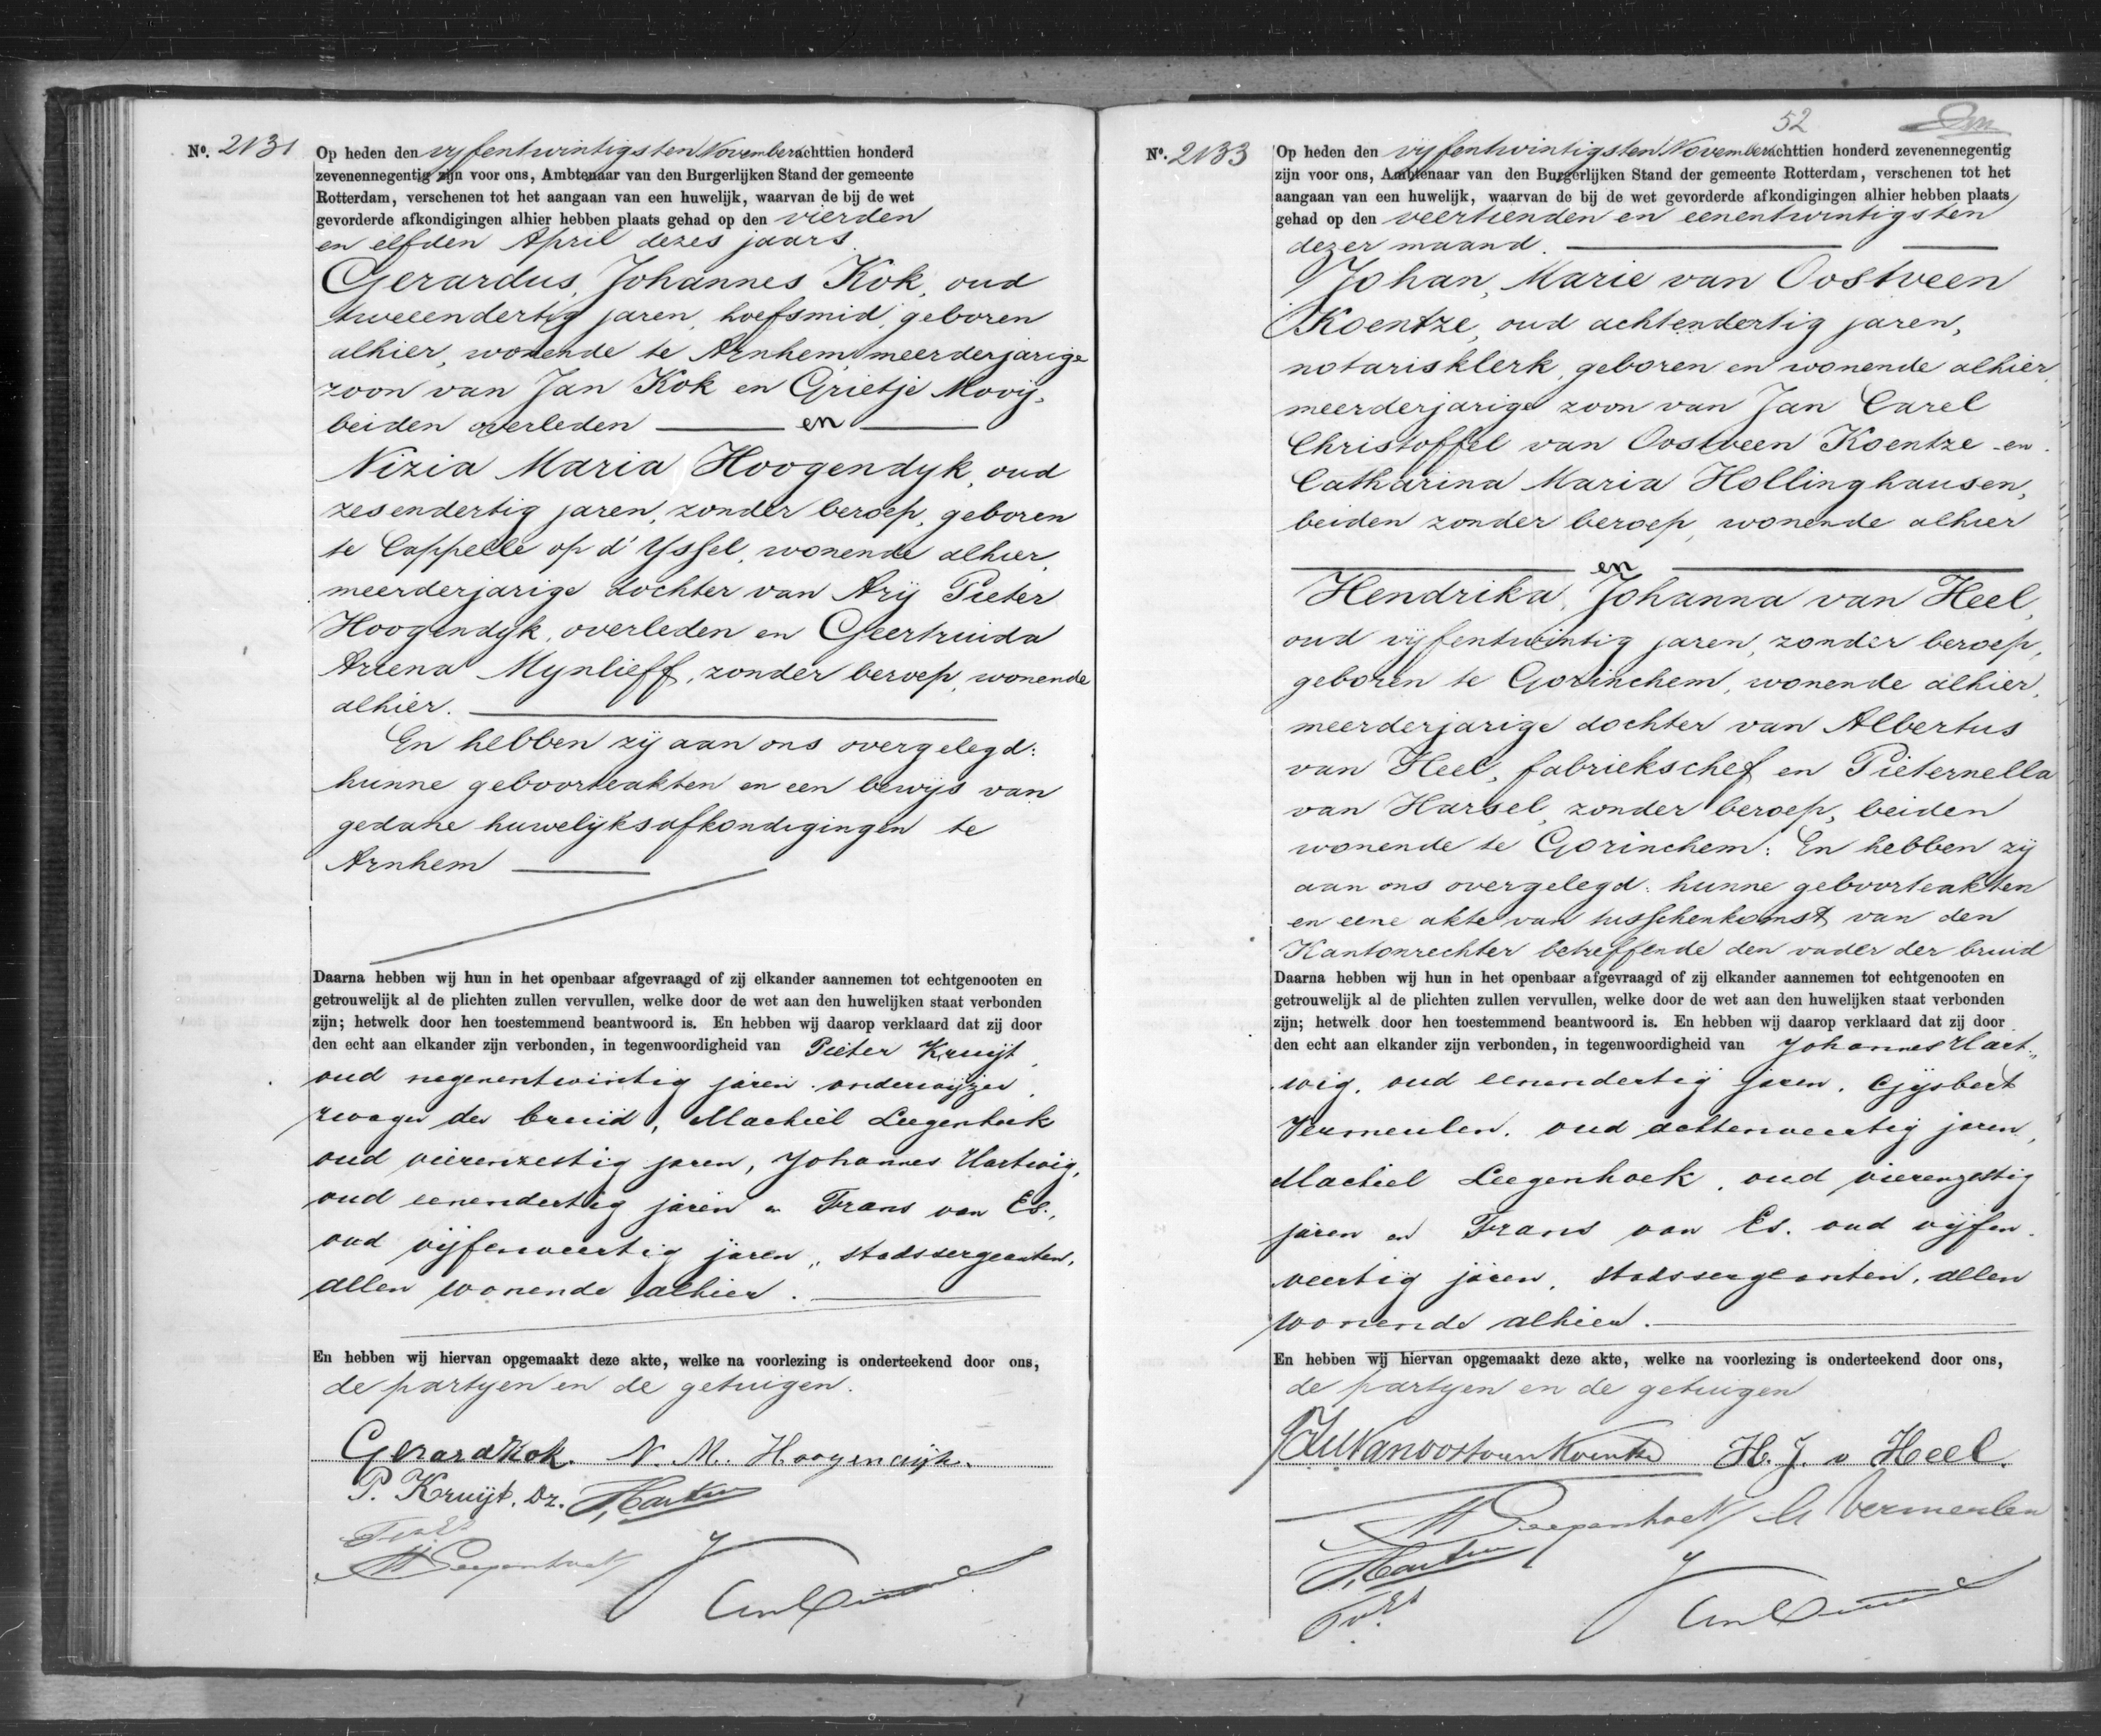 No. 2131
Op heden den vijfentwintigsten November achttien honderd
zevenennegentig zijn voor ons, Ambtenaar van den Burgerlijken Stand der gemeente
Rotterdam, verschenen tot het aangaan van een huwelijk, waarvan de bij de wet
gevorderde afkondigingen alhier hebben plaats gehad op den vierden
en elfden April dezes jaars.
Gerardus, Johannes Kok, oud
tweeendertig jaren, hoefsmid, geboren
alhier, wonende te Arnhem, meerderjarige
zoon van Jan Kok en Grietje Mooij,
beiden overleden en
Nizia Maria Hoogendyk, oud
zesendertig jaren, zonder beroep, geboren
te Cappelle op d' Yssel, wonende alhier,
meerderjarige dochter van Arij Pieter
Hoogendyk, overleden en Geertruida
Ariena Mynlieff, zonder beroep, wonende
alhier.
En hebben zij aan ons overgelegd:
hunne geboorteakten en een bewijs van
gedane huwelijksafkondigingen te
Arnhem
Daarna hebben wij hun in het openbaar afgevraagd of zij elkander aannemen tot echtgenooten en
getrouwelijk al de plichten zullen vervullen, welke door de wet aan den huwelijken staat verbonden
zijn; hetwelk door hen toestemmend beantwoord is. En hebben wij daarop verklaard dat zij door
den echt aan elkander zijn verbonden, in tegenwoordigheid van Pieter Kruijt,
oud negenentwintig jaren, onderwijzer,
zwager der bruid, Machiel Leegenhoek
oud vierenzestig jaren, Johannes Hartwig,
oud eenendertig jaren en Frans van Es,
oud vijfenveertig jaren, stadssergeanten,
allen wonende alhier.
En hebben wij hiervan opgemaakt deze akte, welke na voorlezing is onderteekend door ons,
de partyen en de getuigen.
Gerard Kok. N. M. Hoogendijk.
P. Kruijt, Dz. J. Hartwig
F v Es
M Leegenhoek
No. 2133
52
Op heden den vijfentwintigsten November achttien honderd zevenennegentig
zijn voor ons, Ambtenaar van den Burgerlijken Stand der gemeente Rotterdam, verschenen tot het
aangaan van een huwelijk, waarvan de bij de wet gevorderde afkondigingen alhier hebben plaats
gehad op den veertienden en eenentwintigsten
dezer maand.
Johan, Marie van Oostveen
Koentze, oud achtendertig jaren,
notarisklerk, geboren en wonende alhier,
meerderjarige zoon van Jan Carel
Christoffel van Oostveen Koentze en
Catharina Maria Hollinghausen,
beiden zonder beroep, wonende alhier
en
Hendrika, Johanna van Heel,
oud vijfentwintig jaren, zonder beroep,
geboren te Gorinchem, wonende alhier,
meerderjarige dochter van Albertus
van Heel, fabriekschef en Pieternella
van Harsel, zonder beroep, beiden
wonende te Gorinchem: En hebben zij
aan ons overgelegd: hunne geboorteakten
en eene akte van tusschenkomst van den
Kantonrechter betreffende den vader der bruid
Daarna hebben wij hun in het openbaar afgevraagd of zij elkander aannemen tot echtgenooten en
getrouwelijk al de plichten zullen vervullen, welke door de wet aan den huwelijken staat verbonden
zijn; hetwelk door hen toestemmend beantwoord is. En hebben wij daarop verklaard dat zij door
den echt aan elkander zijn verbonden, in tegenwoordigheid van Johannes Hart„
wig, oud eenendertig jaren, Gijsbert
Vermeulen, oud achtenveertig jaren,
Machiel Leegenhoek, oud vierenzestig
jaren en Frans van Es, oud vijfen„
veertig jaren, stadssergeanten, allen
wonende alhier.
En hebben wij hiervan opgemaakt deze akte, welke na voorlezing is onderteekend door ons,
de partyen en de getuigen
JM van Oostveen Koentze H. J. v Heel.
M Leegenhoek G Vermeulen
J. Hartwig
F v Es